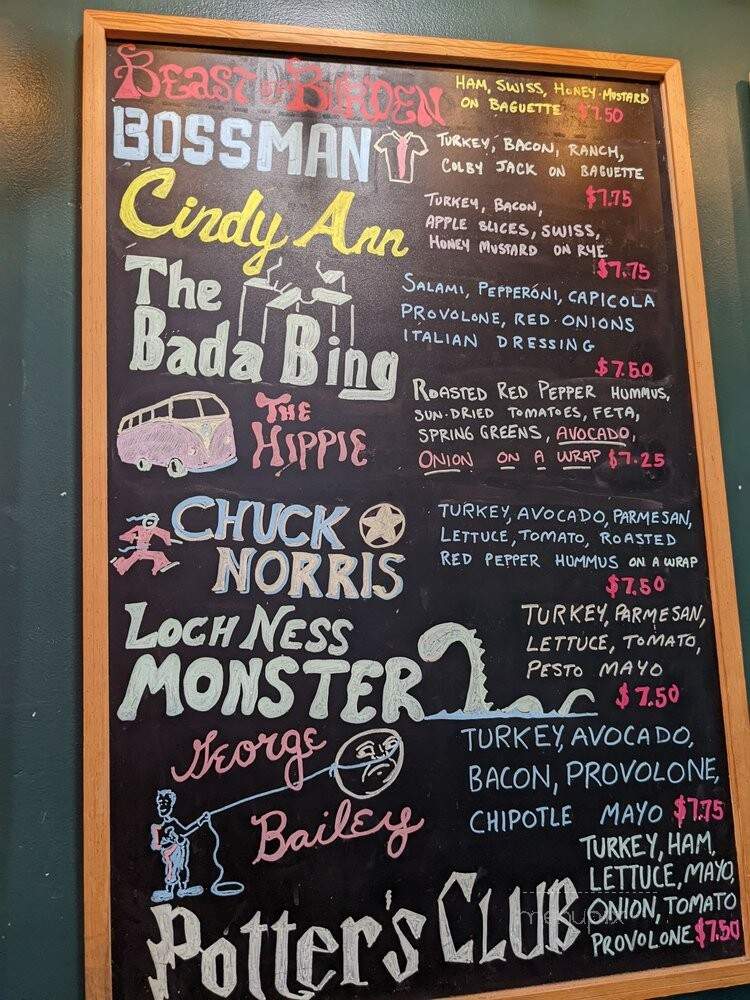 BEAST OF BURDEN
HAM, SWISS, HONEY-MUSTARD
ON BAGUETTE $7.50
BOSSMAN
TURKEY, BACON, RANCH,
COLBY JACK ON BAGUETTE
$7.75
Cindy Ann
TURKEY, BACON,
APPLE SLICES, SWISS,
HONEY MUSTARD ON RYE
$7.75
The
Bada Bing
SALAMI, PEPPERONI, CAPICOLA
PROVOLONE, RED ONIONS
ITALIAN DRESSING
$7.50
THE
HIPPIE
ROASTED RED PEPPER HUMMUS,
SUN-DRIED TOMATOES, FETA,
SPRING GREENS, AVOCADO,
ONION ON A WRAP $7.25
CHUCK
NORRIS
TURKEY, AVOCADO, PARMESAN,
LETTUCE, TOMATO, ROASTED
RED PEPPER HUMMUS ON A WRAP
$7.50
LOCH NESS
MONSTER
TURKEY, PARMESAN,
LETTUCE, TOMATO,
PESTO MAYO
$7.50
George
Bailey
TURKEY, AVOCADO,
BACON, PROVOLONE,
CHIPOTLE MAYO $7.75
POTTER'S CLUB
TURKEY, HAM,
LETTUCE, MAYO,
ONION, TOMATO
PROVOLONE $7.50
menupix